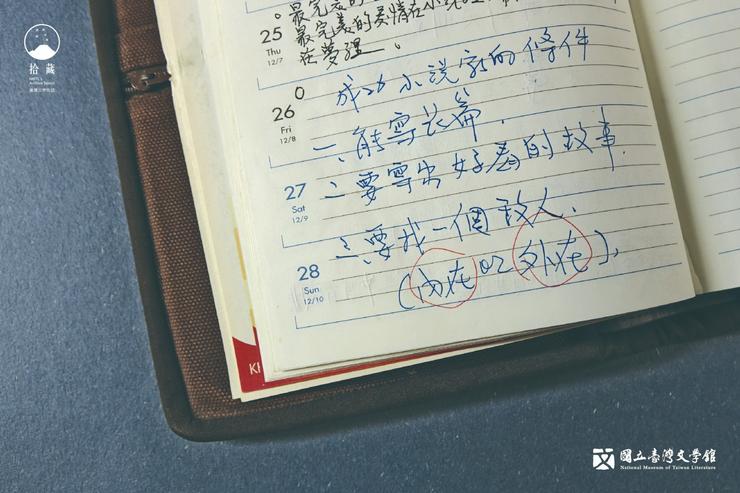 拾藏
臺灣文學物語
。最完美的
最完美的愛情在小說裡
在夢裡。
25
Thu
12/7
成為小說家的條件
26
Fri
12/8
一、能寫長篇.
27
Sat
12/9
二、要寫出好看的故事.
三、要找一個敵人.
28
Sun
12/10
(內在 or 外在).
國立臺灣文學館
National Museum of Taiwan Literature